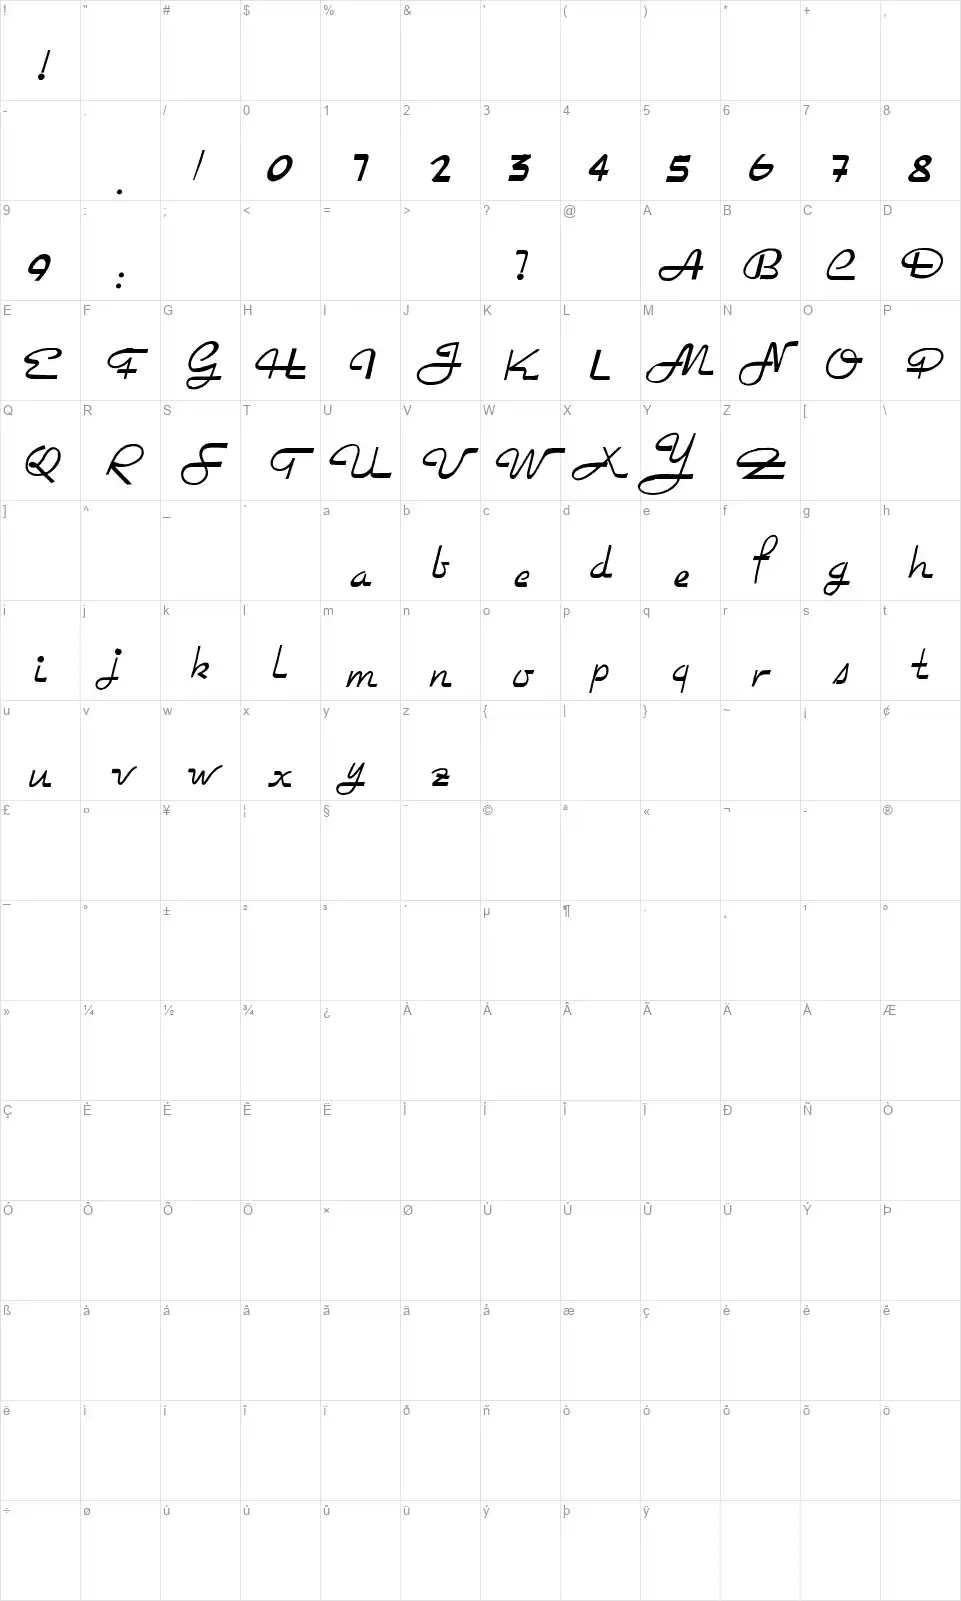 ! " # $ % & ' ( ) * + ,
!
- . / 0 1 2 3 4 5 6 7 8
. / 0 1 2 3 4 5 6 7 8
9 : ; < = > ? @ A B C D
9 : ? A B C D
E F G H I J K L M N O P
E F G H I J K L M N O P
Q R S T U V W X Y Z [ \
Q R S T U V W X Y Z
] ^ _ ` a b c d e f g h
a b c d e f g h
i j k l m n o p q r s t
i j k l m n o p q r s t
u v w x y z { | } ~ ¡ ¢
u v w x y z
£ ¤ ¥ ¦ § ¨ © ª « ¬ - ®
¯ ° ± ² ³ ´ µ ¶ · ¸ ¹ º
» ¼ ½ ¾ ¿ À Á Â Ã Ä Å Æ
Ç È É Ê Ë Ì Í Î Ï Ð Ñ Ò
Ó Ô Õ Ö × Ø Ù Ú Û Ü Ý Þ
ß à á â ã ä å æ ç è é ê
ë ì í î ï ð ñ ò ó ô õ ö
÷ ø ù ú û ü ý þ ÿ